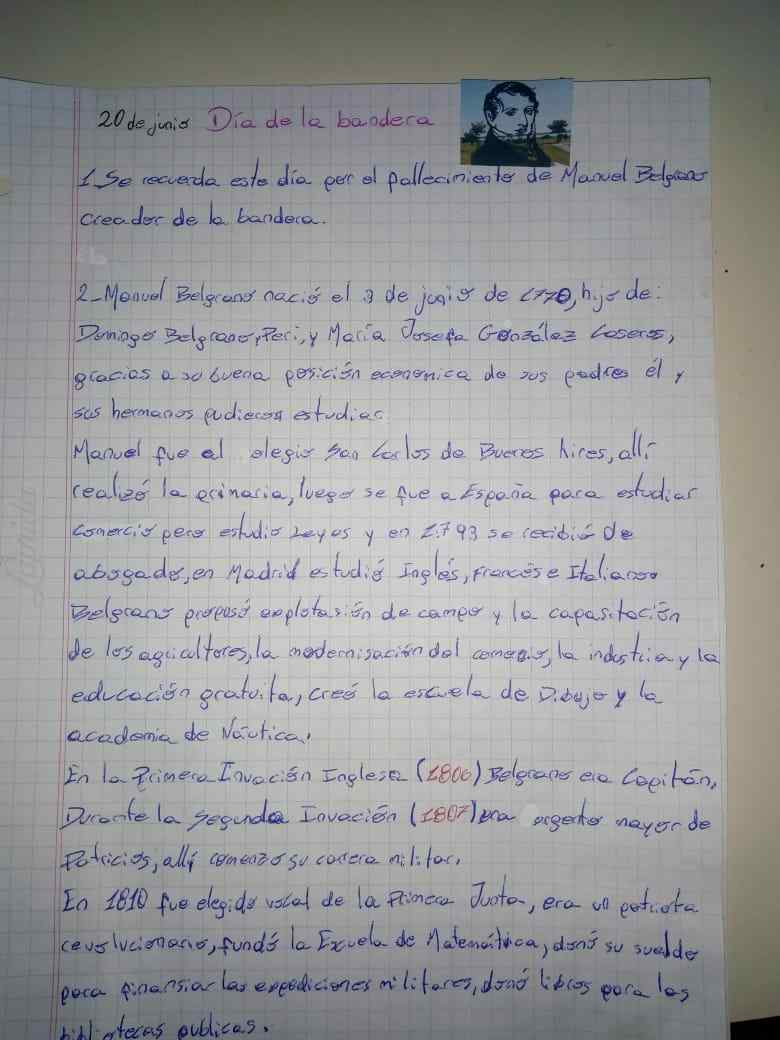 20 de junio Día de la bandera
1_Se recuerda este día por el fallecimiento de Manuel Belgrano
creador de la bandera.
2_Manuel Belgrano nació el 3 de junio de 1770, hijo de:
Domingo Belgrano, Peri, y María Josefa González Caseros,
gracias a su buena posición economica de sus padres él y
sus hermanos pudieron estudiar.
Manuel fue al colegio San Carlos de Buenos Aires, allí
realizó la primaria, luego se fue a España para estudiar
Comercio pero estudio Leyes y en 1.793 se recibió de
abogado, en Madrid estudió Inglés, francés e Italiano.
Belgrano propusó explotasión de campo y la capasitación
de los agricultores, la modernisación del comercio, la industria y la
educación gratuita, creó la escuela de Dibujo y la
academia de Náutica.
En la Primera Invación Inglesa (1806) Belgrano era Capitán,
Durante la Segunda Invación (1807) era argento mayor de
Patricios, allí comenzo su carrera militar.
En 1810 fue elegido vocal de la Primera Junta, era un patriota
revolucionario, fundó la Escuela de Matemática, donó su sueldo
para finansiar las expediciones militares, donó libros para las
bibliotecas publicas.